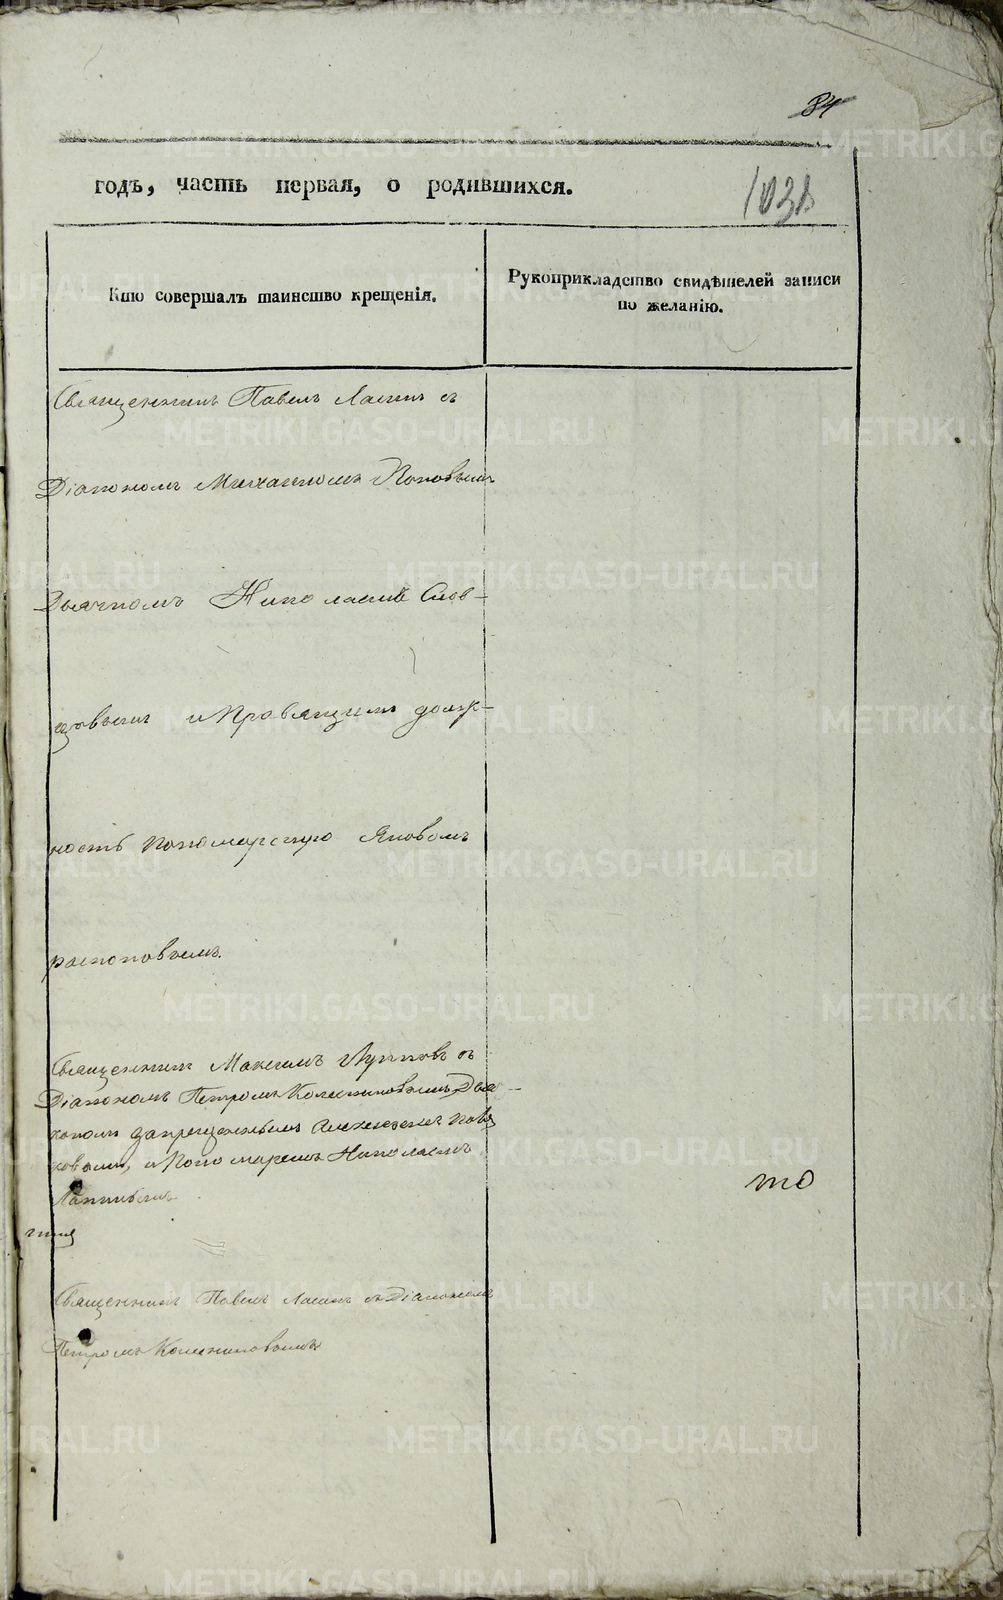 84
годъ, часть первая, о родившихся.
103
Кто совершалъ таинство крещенія.
Рукоприкладство свидѣтелей записи
по желанію.
Священникъ Павелъ Ласинъ съ
Діакономъ Михаиломъ Поповымъ
Дьячкомъ Николаемъ Слов-
цовымъ и Правящимъ долж-
ность пономарскую Яковомъ
распоповымъ.
Священникъ Максимъ Луппов съ
Діакономъ Петромъ Колесниковымъ, Дья-
запрещеннымъ
и Пономаремъ Николаемъ
то
Священникъ Павелъ Ласинъ съ Діакономъ
Петромъ Колесниковымъ
METRIKI.GASO-URAL.RU